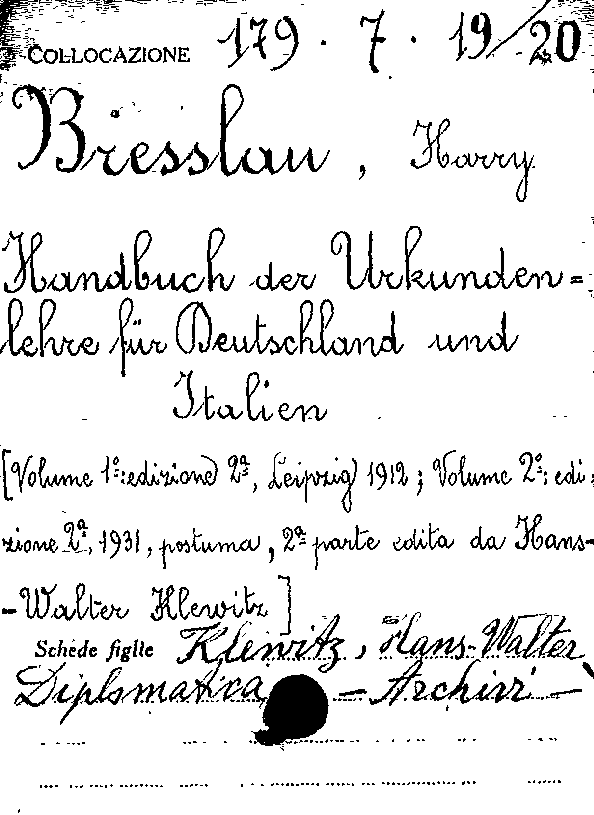 COLLOCAZIONE 179. 7. 19/20
Bresslau, Harry
Handbuch der Urkunden=
lehre für Deutschland und
Italien
[Volume 1º: edizione 2ª, Leipzig, 1912; Volume 2º: edi=
zione 2ª, 1931, postuma, 2ª parte edita da Hans-
-Walter Klewitz]
Schede figlie Klewitz, Hans-Walter
Diplomatica — Archivi —